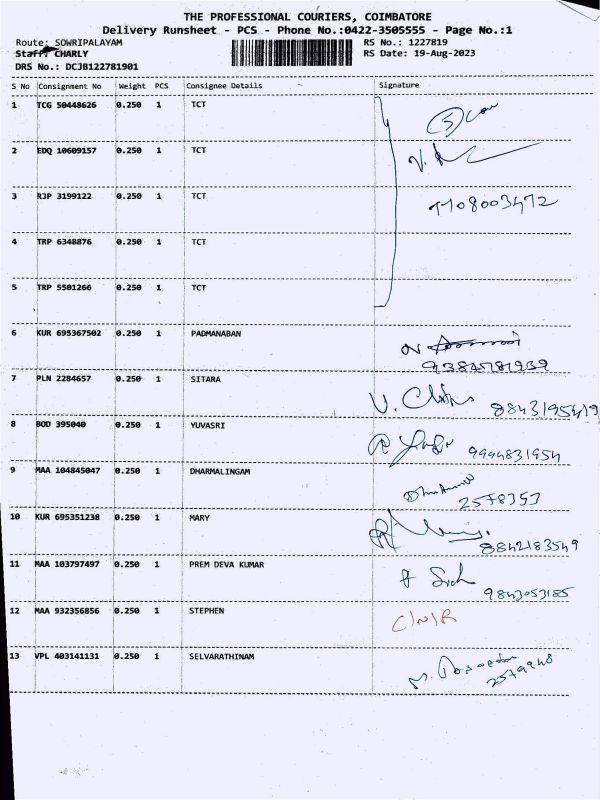 THE PROFESSIONAL COURIERS, COIMBATORE
Delivery Runsheet - PCS - Phone No.:0422-3505555 - Page No.:1
Route: SOWRIPALAYAM RS No.: 1227819
Staff: CHARLY RS Date: 19-Aug-2023
DRS No.: DCJB122781901
S No Consignment No Weight PCS Consignee Details Signature
1 TCG 50448626 0.250 1 TCT 5
2 EDQ 10609157 0.250 1 TCT
3 RJP 3199122 0.250 1 TCT 7708003472
4 TRP 6348876 0.250 1 TCT
5 TRP 5501266 0.250 1 TCT
6 KUR 695367502 0.250 1 PADMANABAN
9384781939
7 PLN 2284657 0.250 1 SITARA 8843195419
8 BOD 395040 0.250 1 YUVASRI 9994831954
9 MAA 104845047 0.250 1 DHARMALINGAM
2578353
10 KUR 695351238 0.250 1 MARY
8842183549
11 MAA 103797497 0.250 1 PREM DEVA KUMAR
9843053185
12 MAA 932356856 0.250 1 STEPHEN C/N/R
13 VPL 403141131 0.250 1 SELVARATHINAM